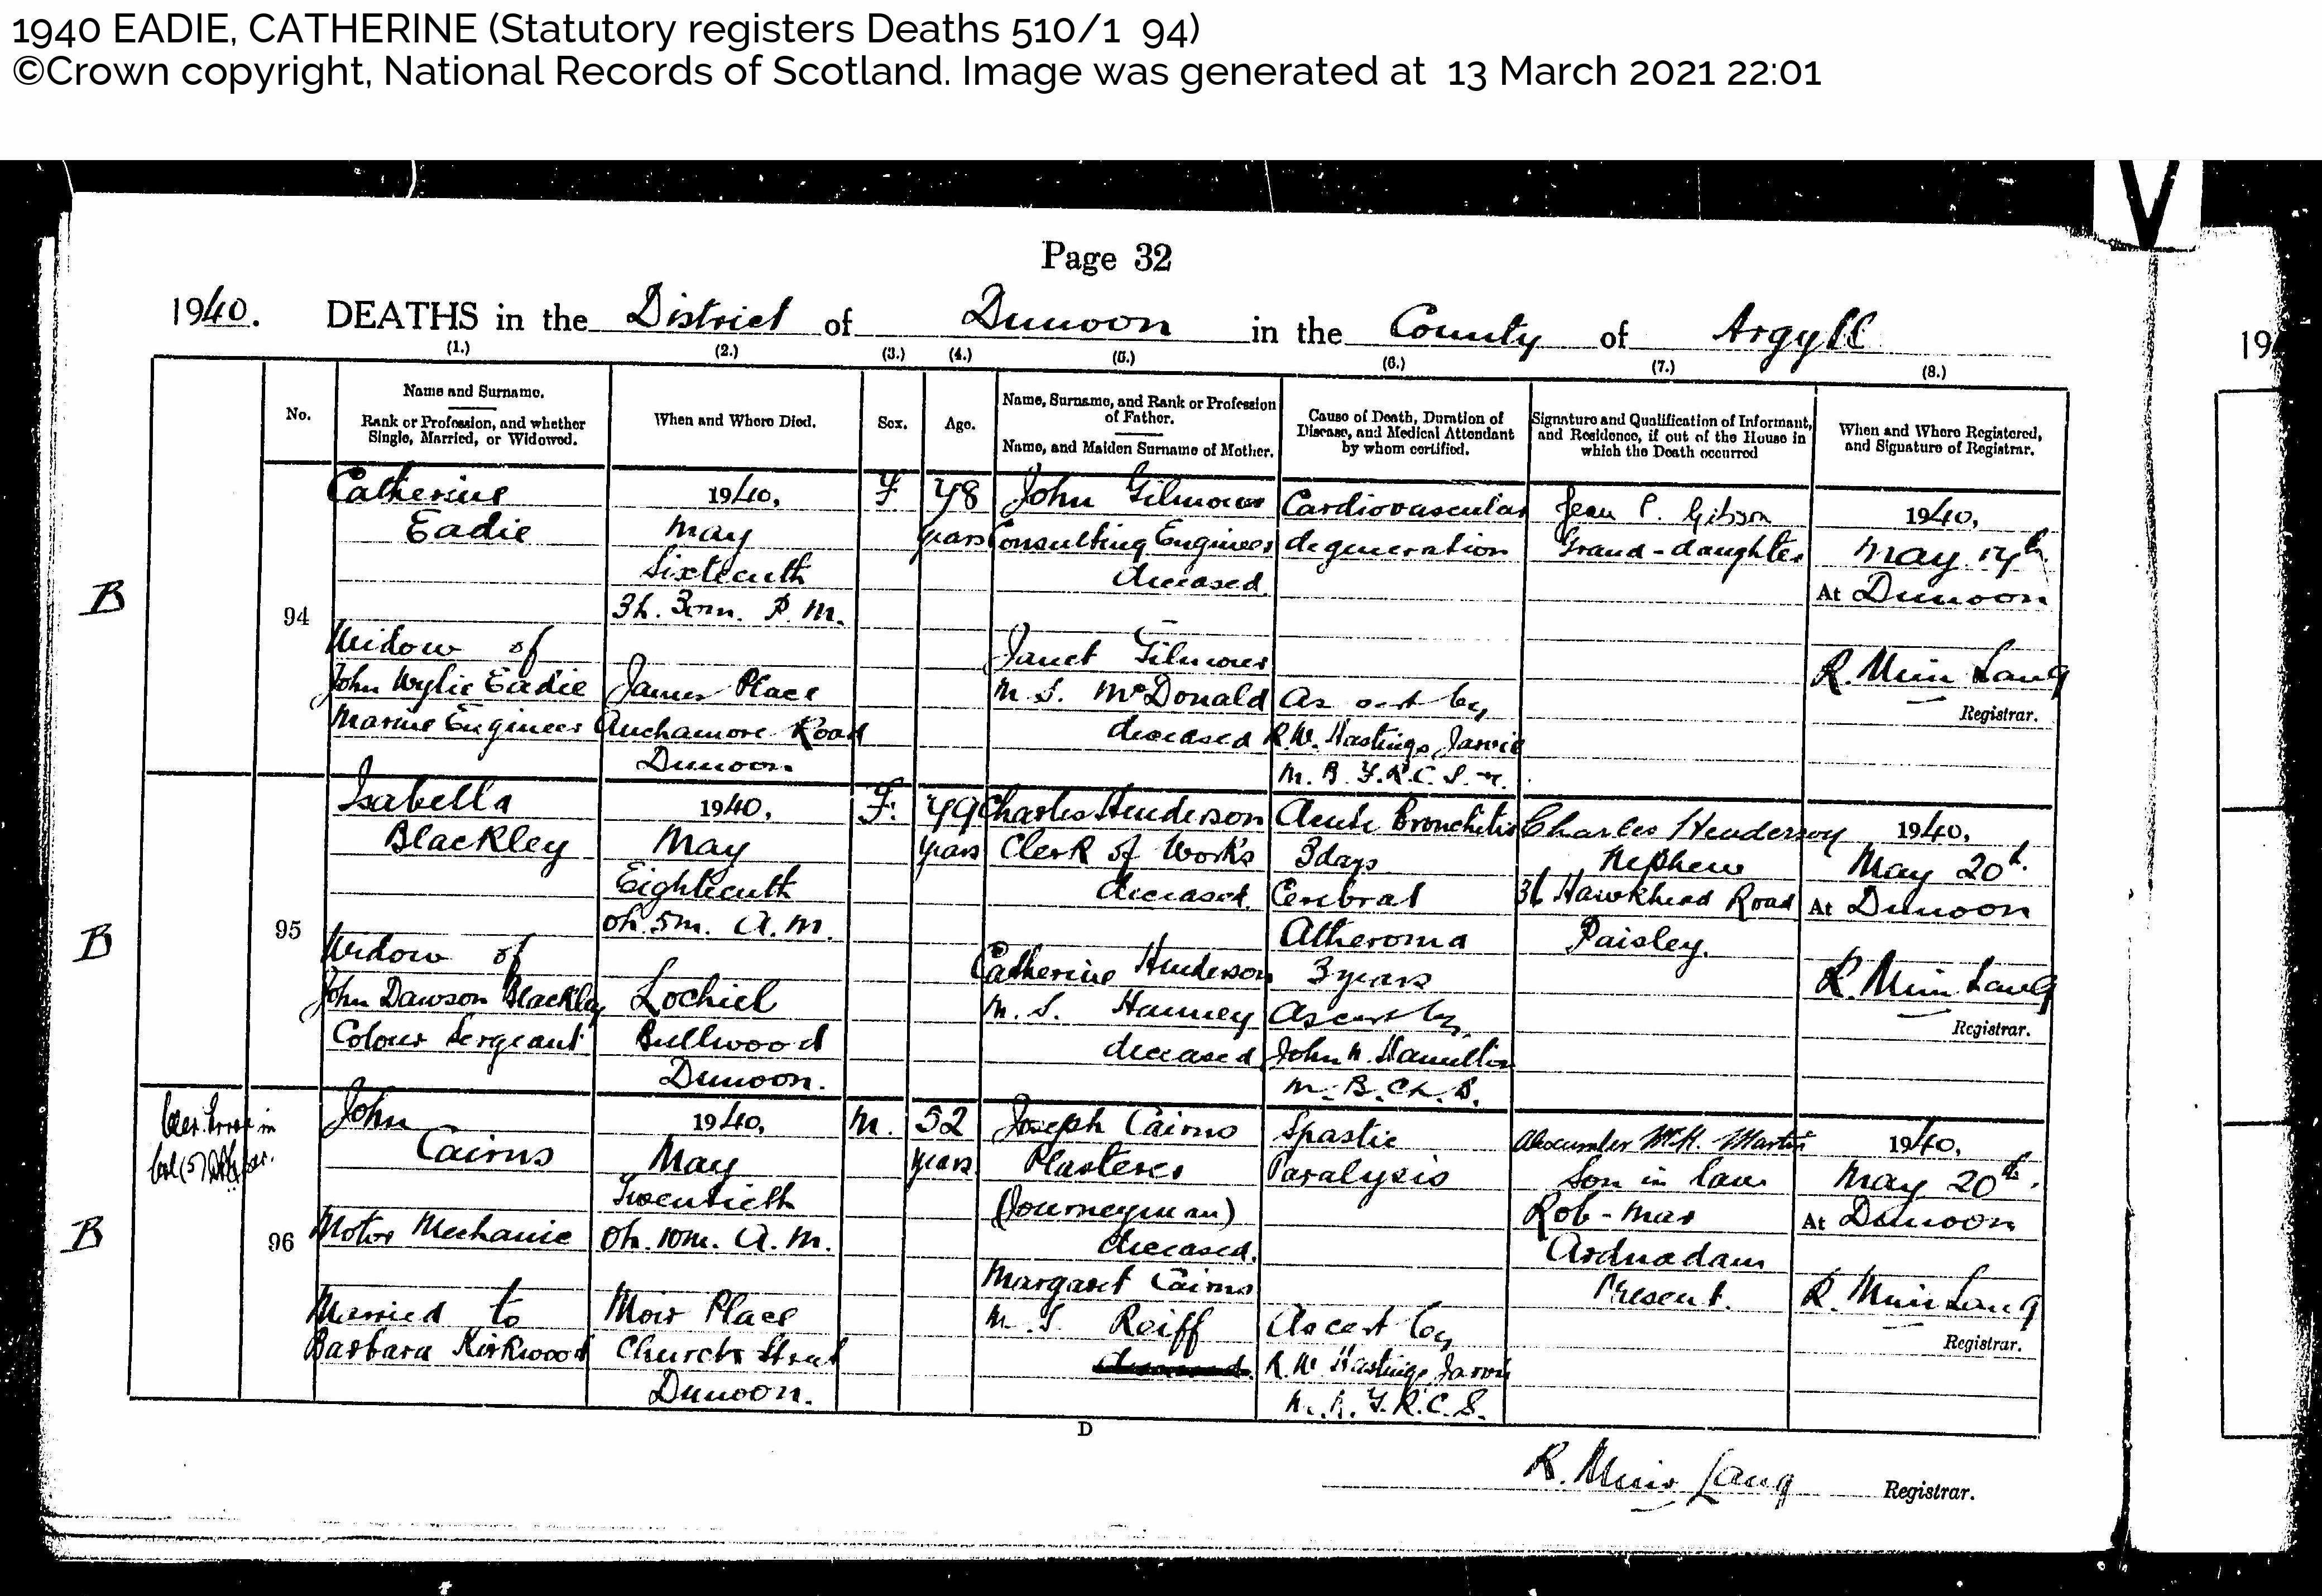 1940 EADIE, CATHERINE (Statutory registers Deaths 510/1 94)
©Crown copyright, National Records of Scotland. Image was generated at 13 March 2021 22:01
Page 32
1940. DEATHS in the District of Dunoon in the County of Argyll
19
(1.) (2.) (3.) (4.) (5.) (6.) (7.) (8.)
No.
Name and Surname.
Rank or Profession, and whether
Single, Married, or Widowed.
When and Where Died.
Sex.
Age.
Name, Surname, and Rank or Profession
of Father.
Name, and Maiden Surname of Mother.
Cause of Death, Duration of
Disease, and Medical Attendant
by whom certified.
Signature and Qualification of Informant,
and Residence, if out of the House in
which the Death occurred
When and Where Registered,
and Signature of Registrar.
B
94
Catherine
Eadie
Widow of
John Wylie Eadie
Marine Engineer
1940,
May
Sixteenth
3h. 30m. P.M.
James Place
Auchamore Road
Dunoon
F
78
years
John Gilmour
Consulting Engineer
deceased.
Janet Gilmour
M.S. McDonald
deceased
Cardiovascular
degeneration
As cert by
R.W. Hastings Jarvie
M.B. F.R.C.S.
Jean P. Gibson
Grand-daughter
1940,
May 17th
At Dunoon
R. Muir Lang
Registrar.
B
95
Isabella
Blackley
Widow of
John Dawson Blackley
Colour Sergeant
1940,
May
Eighteenth
0h. 5m. A.M.
Lochiel
Bullwood
Dunoon.
F.
79
years
Charles Henderson
Clerk of Works
deceased.
Catherine Henderson
M.S. Hanney
deceased
Acute Bronchitis
3 days
Cerebral
Atheroma
3 years
As cert by
John Hamilton
M.B. Ch.B.
Charles Henderson
Nephew
36 Hawkhead Road
Paisley.
1940,
May 20th.
At Dunoon
R. Muir Lang
Registrar.
B
96
John
Cairns
Motor Mechanic
Married to
Barbara Kirkwood
1940,
May
Twentieth
0h. 10m. A.M.
Moir Place
Church Street
Dunoon.
M.
52
years
Joseph Cairns
Plasterer
(Journeyman)
deceased.
Margaret Cairns
M.S Reiff
Spastic
Paralysis
As cert by
R.W. Hastings Jarvie
M.B. F.R.C.S.
Alexander Martin
Son in law
Rob-Mar
Ardnadam
Present.
1940,
May 20th.
At Dunoon
R. Muir Lang
Registrar.
D
R. Muir Lang Registrar.